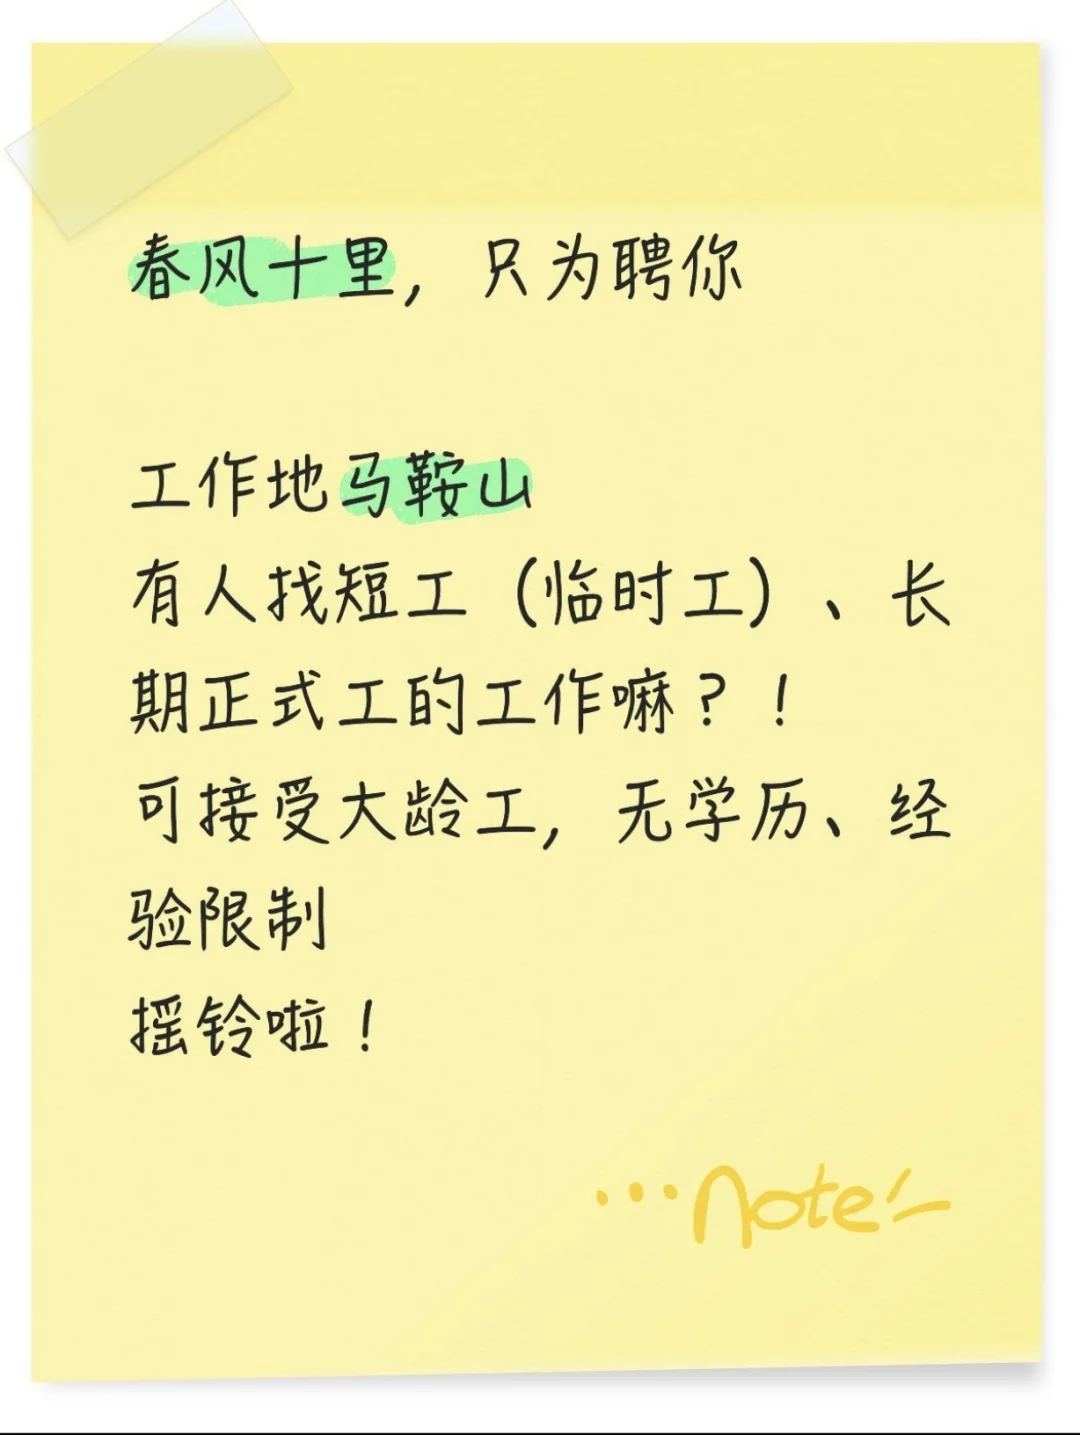 春风十里，只为聘你
工作地马鞍山
有人找短工（临时工）、长
期正式工的工作嘛？！
可接受大龄工，无学历、经
验限制
摇铃啦！
...note